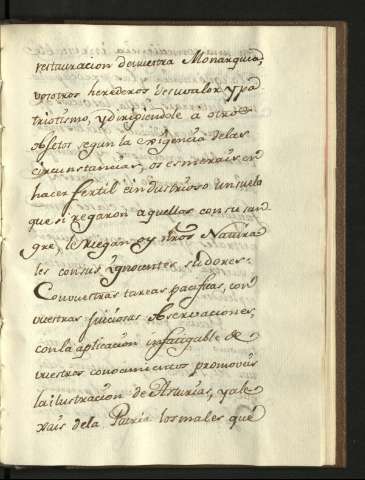 restauracion de nuestra Monarquia,
vosotros herederos de su valor y pa
triotismo, y dirigiendole a otros
objetos segun la exigencia de las
circunstancias, os esmerais en
hacer fertil e industrioso un suelo
que si regaron aquellos con su san
gre, le riegan oy ntros Natura
les con sus ygnocentes sudores.
Con vuestras tareas pacificas, con
vuestras juiciosas observaciones,
con la aplicacion infatigable de
vuestros conocimientos promoveis
la ilustracion de Asturias, y ale
xais de la Patria los males que